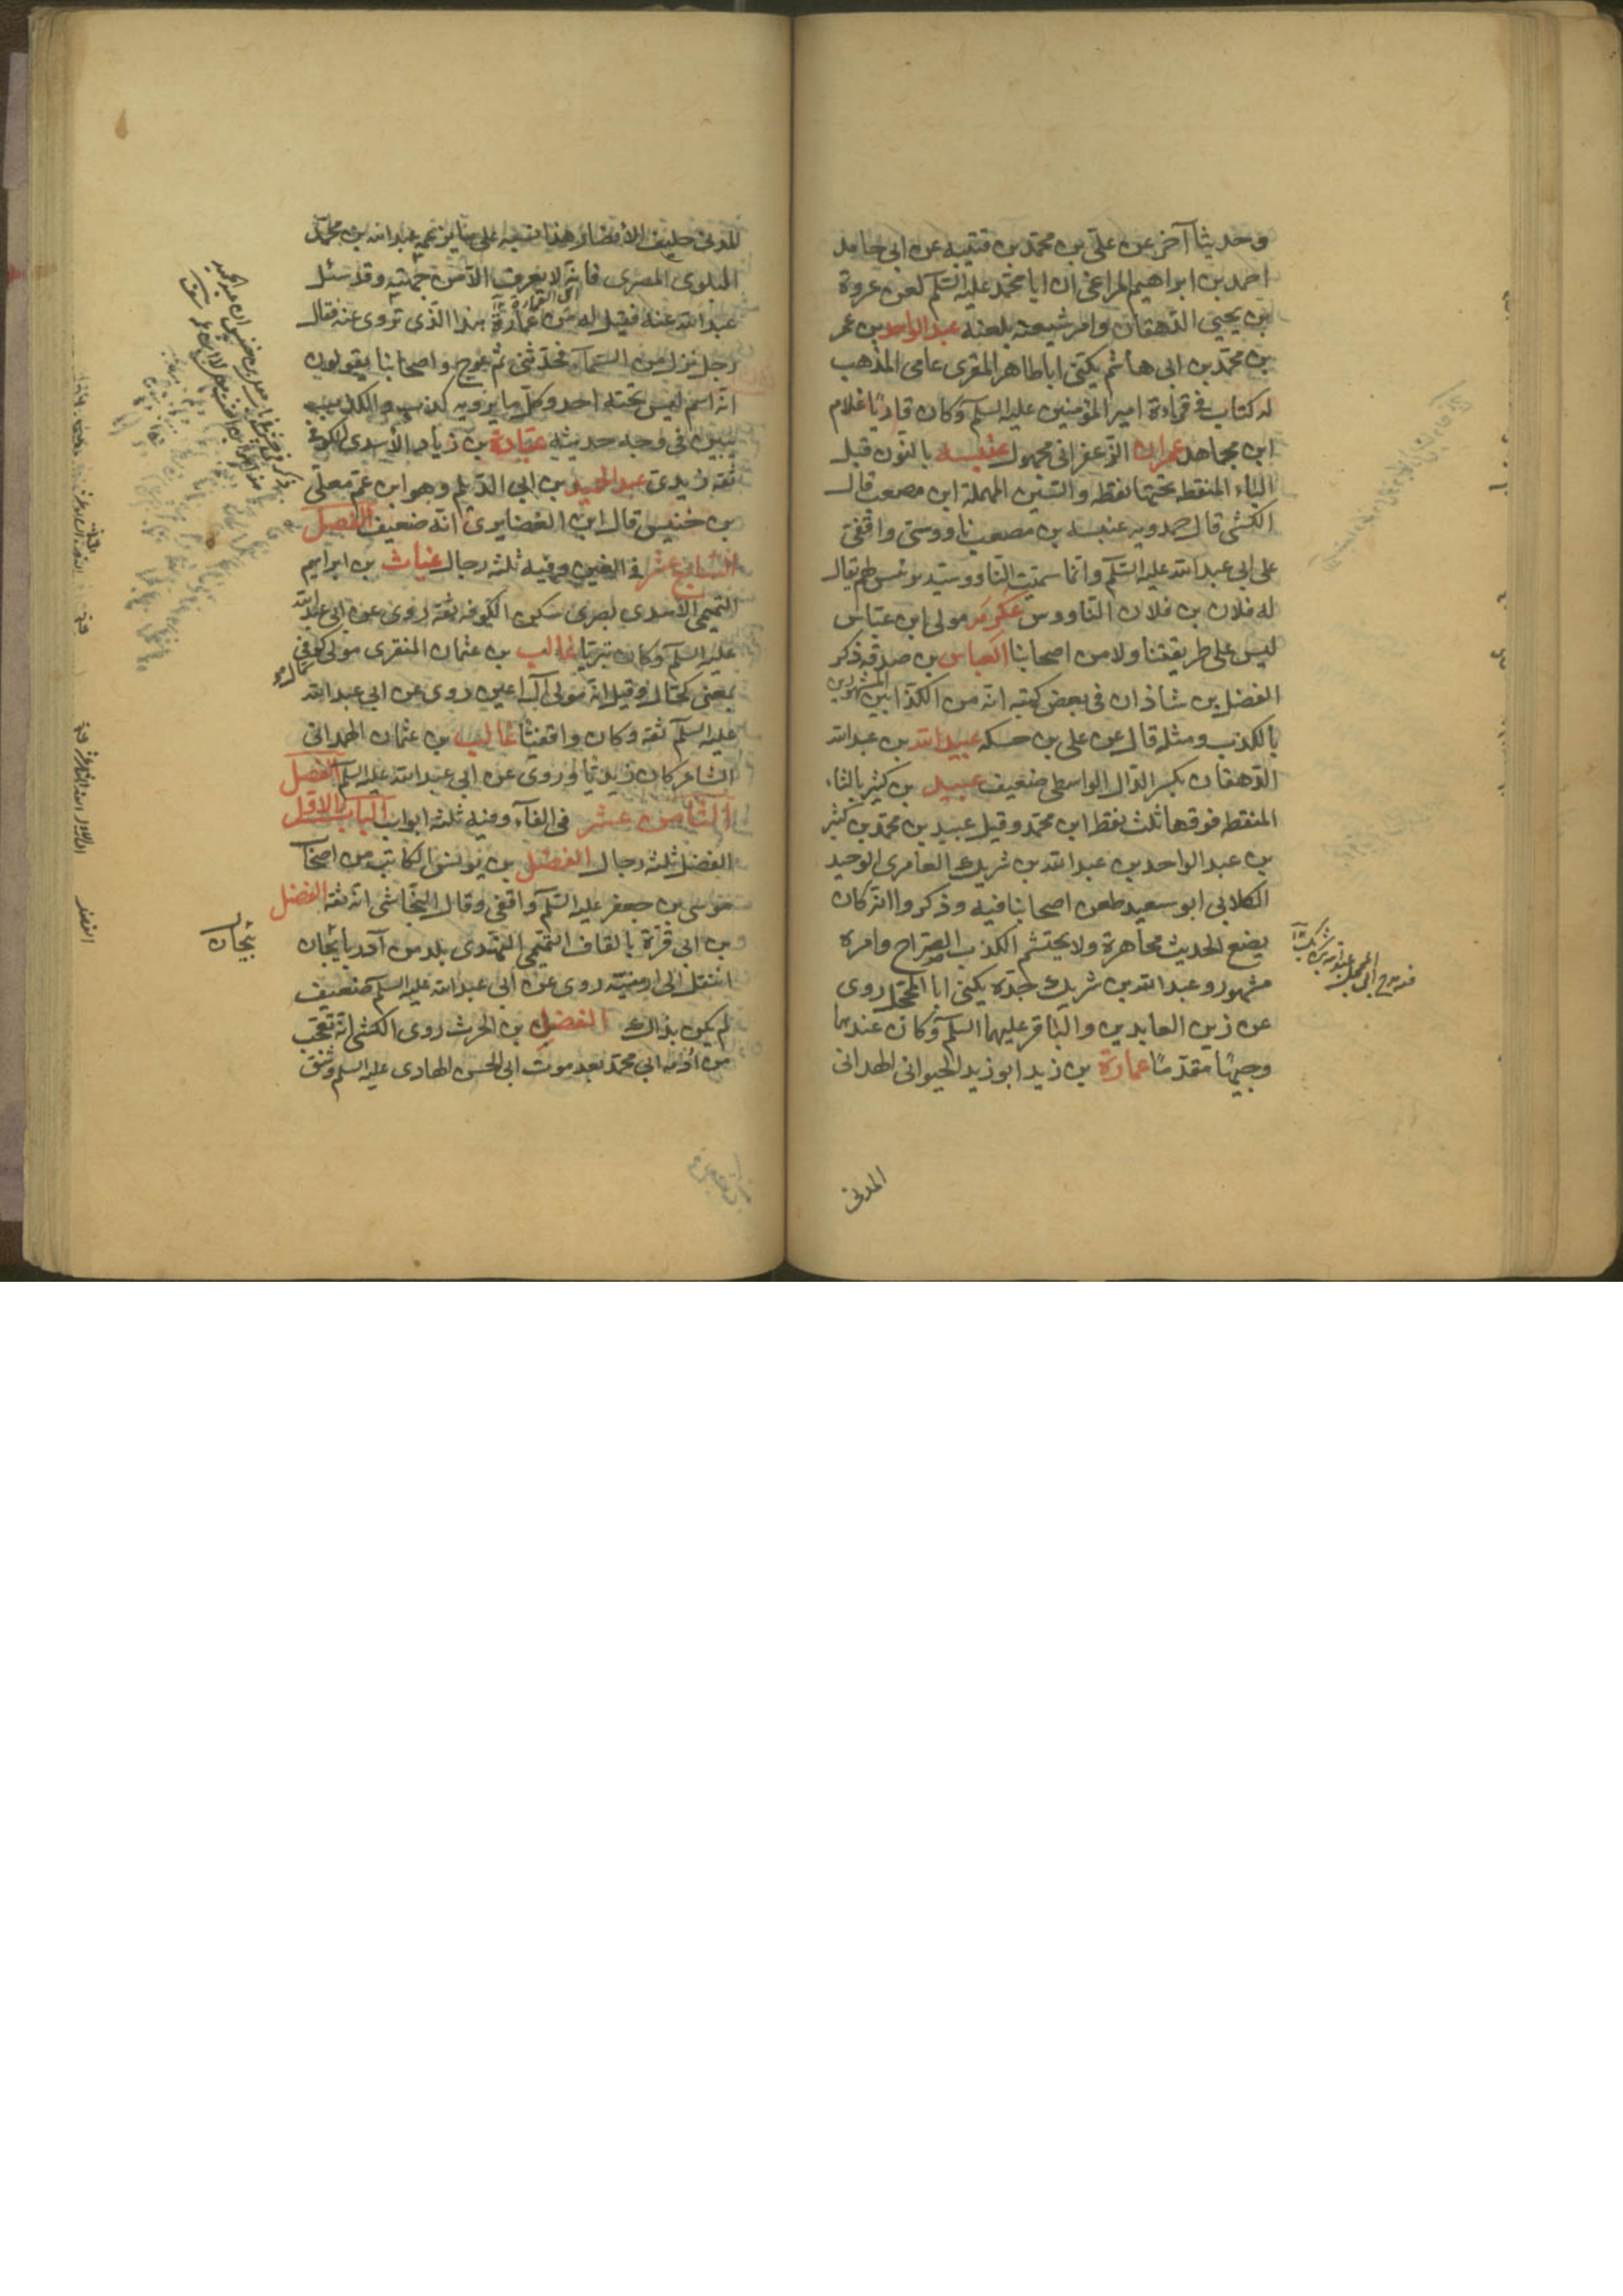 وحديثا آخر عن علي بن محمد بن قتيبه عن ابى حامد
احمد بن ابراهيم المراغى ان ابا محمد عليه السلم لعن عروة
بن يحيى الدهقان وامر شيعته بلعنه عبد الواحد بن عمر
بن محمد بن ابى هاشم يكنى ابا طاهر المقرى عامى المذهب
له كتاب فى قراءة امير المؤمنين عليه السلم وكان قاريًا غلام
ابن مجاهد عمران الزعفرانى مجهول عنبسه بالنون قبل
الباء المنقطه تحتها نقطه والسين المهملة ابن مصعب قال
الكشى قال حمدويه عنبسه بن مصعب ناووسى واقفى
على ابى عبد الله عليه السلم وانما سميت الناووسيه برئيس لهم يقال
له فلان بن فلان الناووس عكرمه مولى ابن عباس
ليس على طريقتنا ولا من اصحابنا العباس بن صدقه ذكر
الفضل بن شاذان فى بعض كتبه انه من الكذابين المشهورين
بالكذب ومثله قال عن على بن حسكه عبيد الله بن عبد الله
الدهقان بكسر الدال الواسطى ضعيف عبيد بن كثير بالثاء
المنقطه فوقها ثلث نقط ابن محمد وقيل عبيد بن محمد بن كثير
بن عبد الواحد بن عبد الله بن شريك العامرى الوحيد
الكلابى ابو سعيد طعن اصحابنا فيه وذكروا انه كان
يضع الحديث مجاهرة ولا يحتشم الكذب الصراح وامره
مشهور وعبد الله بن شريك جده يكنى ابا المحجل روى
عن زين العابدين والباقر عليهما السلم وكان عندهما
وجيهًا مقدمًا عمارة بن زيد ابو زيد الخيوانى الهمدانى
المدنى
المدنى حليف الانصار هذا نسبه على ما يزعمه عبد الله بن محمد
البلوى المصرى فانه لا يعرف الا من جهته وقد سئل
عبد الله عنه فقيل له من عمارة هذا الذى تروى عنه فقال
رجل نزل من السماء فحدثنى ثم عرج واصحابنا يقولون
انه اسم ليس تحته احد وكل ما يرويه كذب والكذب
يبين فى وجه حديثه عبادة بن زياد الأسدى الكوفى
ثقه زيدى عبد الحميد بن ابى الديلم وهو ابن عم معلى
بن خنيس قال ابن الغضايرى انه ضعيف الفصل
السابع عشر فى الغين وفيه ثلثه رجال غياث بن ابراهيم
التميمى الأسدى بصرى سكن الكوفه ثقه روى عن ابى عبد الله
عليه السلم وكان بتريًا غالب بن عثمان المنقرى مولى كوفى
بمعنى كحال وقيل انه مولى آل اعين روى عن ابى عبد الله
عليه السلم ثقه وكان واقفيًا غالب بن عثمان الهمدانى
الشاعر كان زيديًا وروى عن ابى عبد الله عليه السلم الفصل
الثامن عشر فى الفاء وفيه ثلثه ابواب الباب الاول
الفضل ثلثه رجال الفضل بن يونس الكاتب من اصحاب
موسى بن جعفر عليه السلم واقفى وقال النجاشى انه ثقه الفضل
بن ابى قرة بالقاف التميمى السهندى بلد من آذربايجان
انتقل الى ارمنيه روى عن ابى عبد الله عليه السلم ضعيف
لم يكن بذاك الفضل بن الحرث روى الكشى انه تعجب
من ابى محمد بعد موت ابى الحسن الهادى عليه السلم